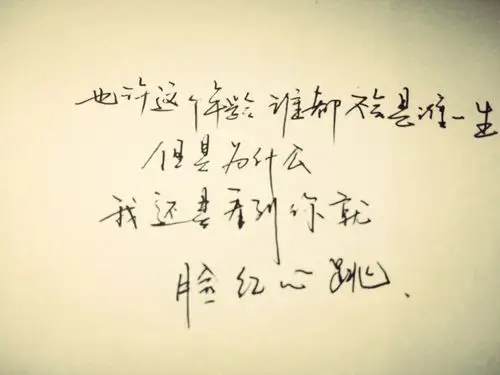 也许这个年龄谁都不会是谁一生
但是为什么
我还是看到你就
脸红心跳.